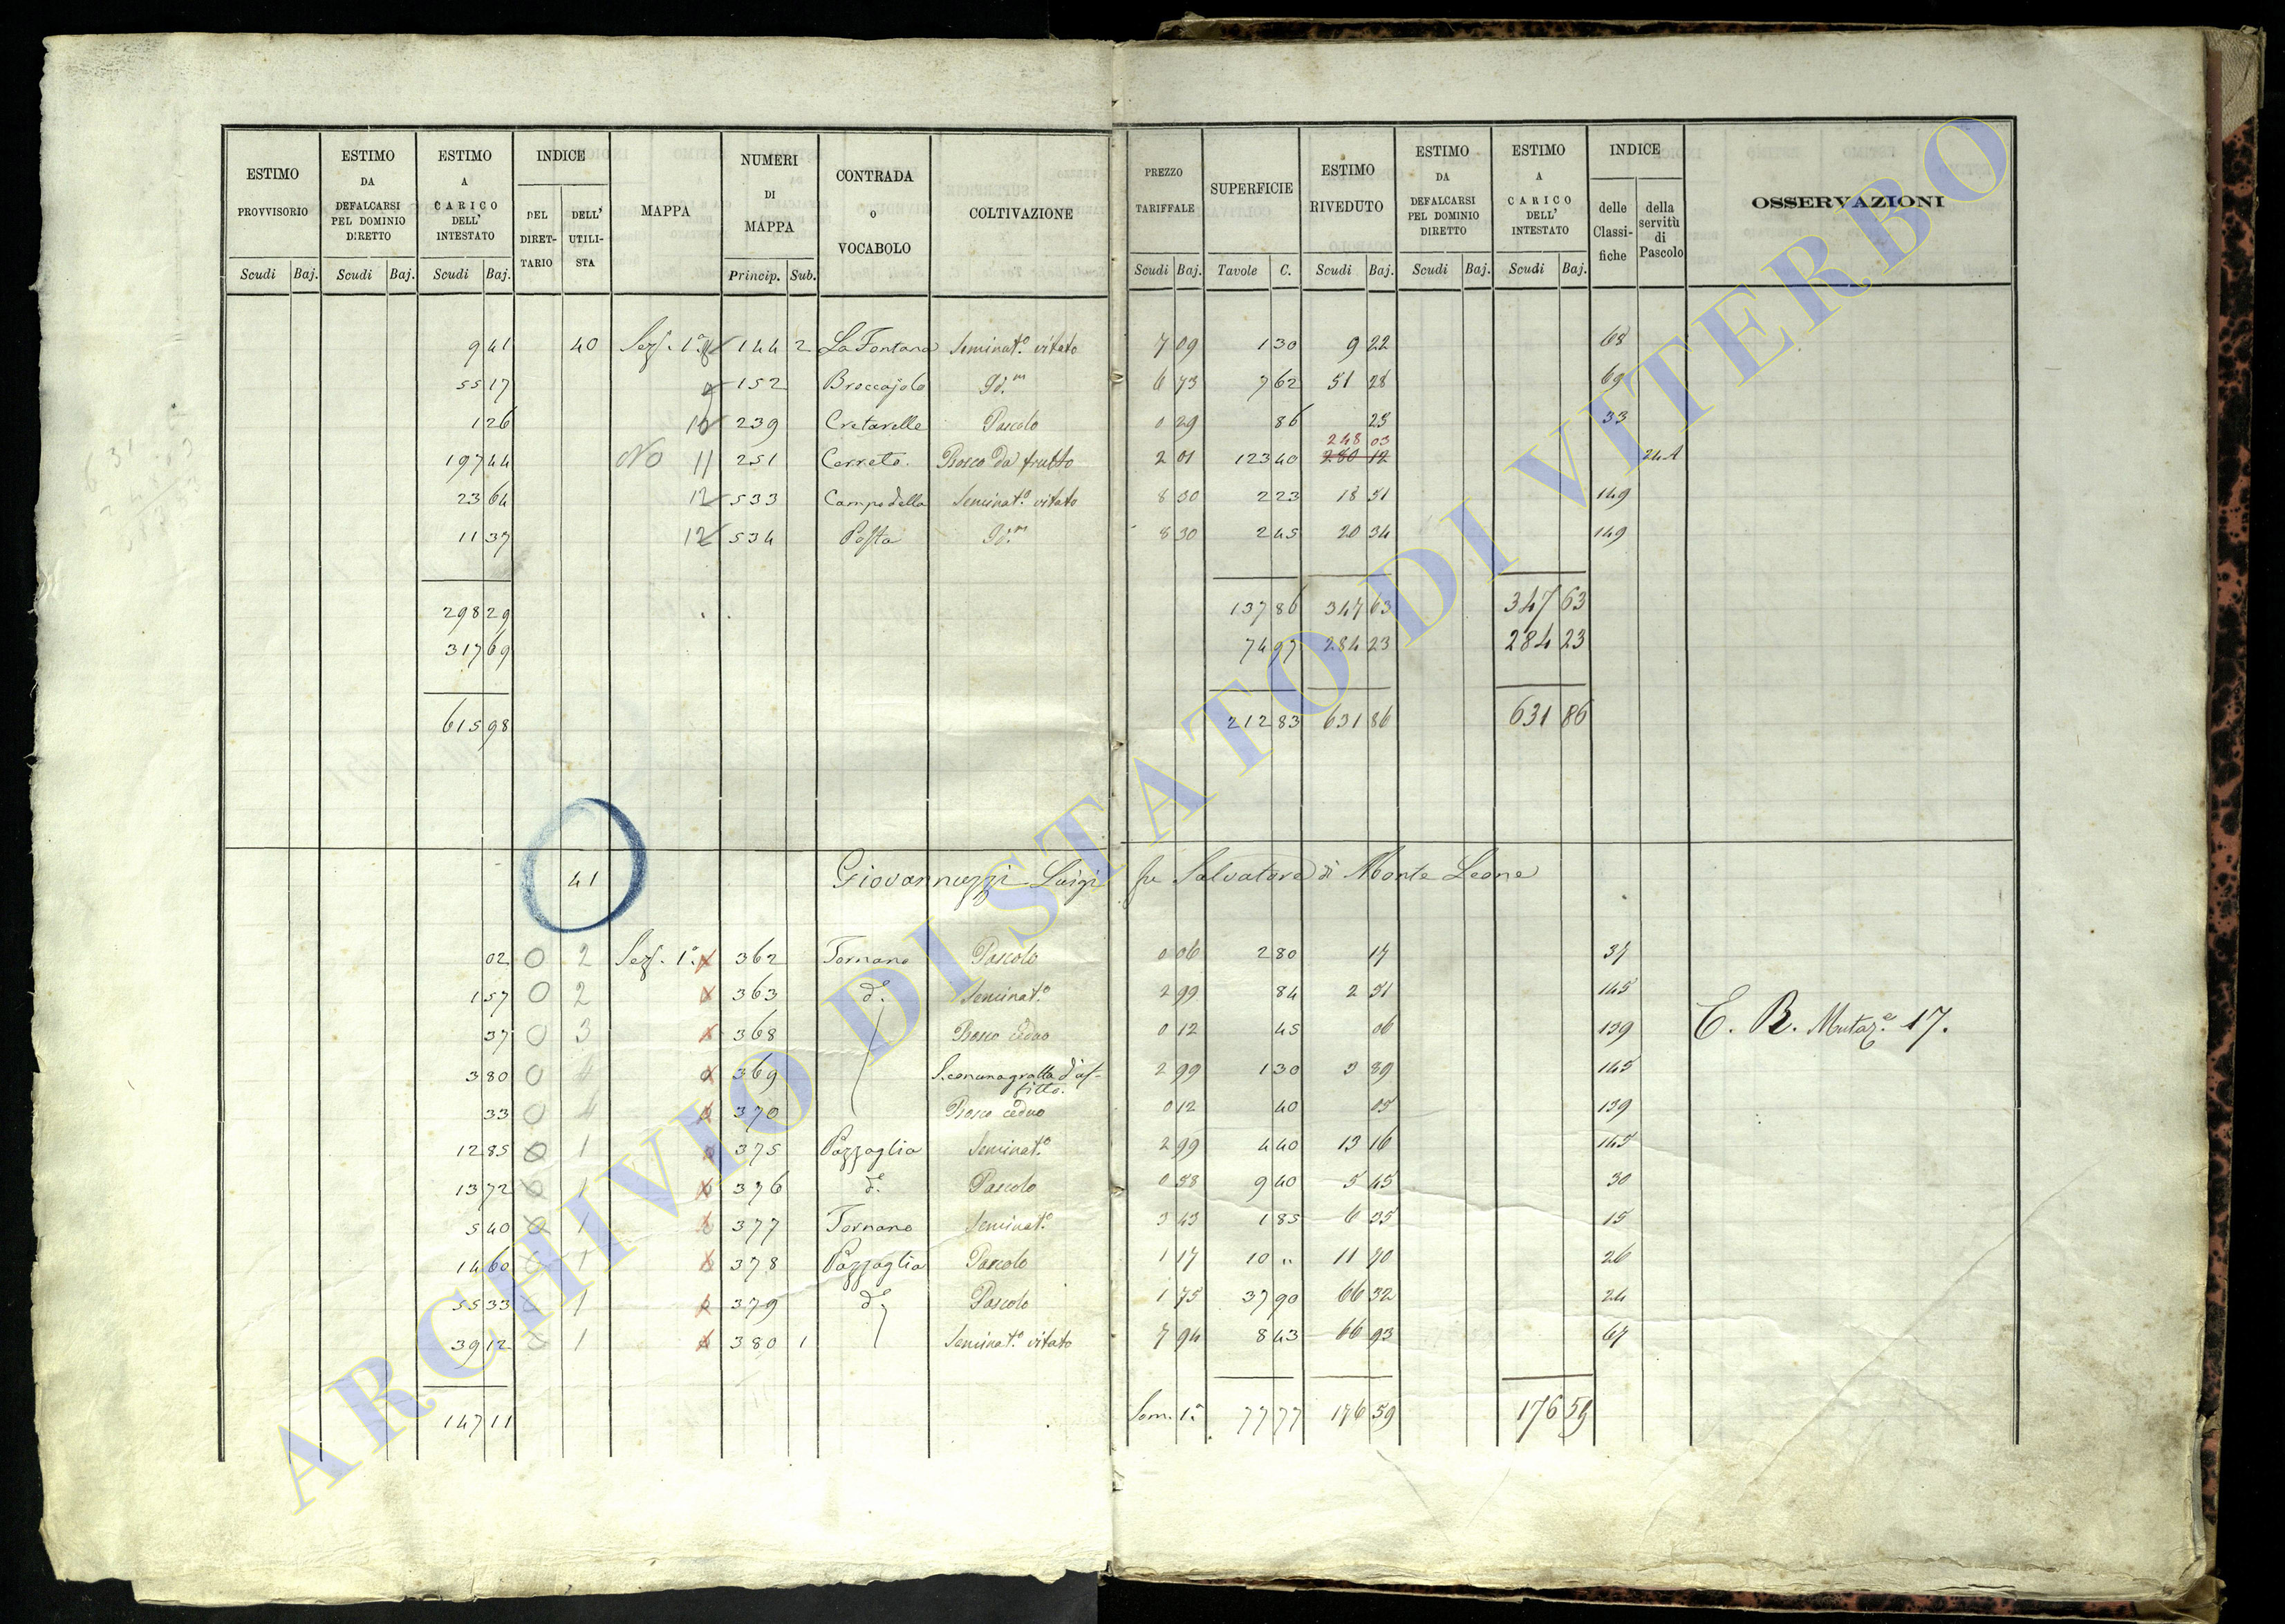 ESTIMO PROVVISORIO Scudi Baj. ESTIMO DA DEFALCARSI PEL DOMINIO DIRETTO Scudi Baj. ESTIMO A CARICO DELL' INTESTATO Scudi Baj. INDICE DEL DIRET-TARIO DELL' UTILI-STA MAPPA NUMERI DI MAPPA Princip. Sub. CONTRADA o VOCABOLO COLTIVAZIONE PREZZO TARIFFALE Scudi Baj. SUPERFICIE Tavole C. ESTIMO RIVEDUTO Scudi Baj. ESTIMO DA DEFALCARSI PEL DOMINIO DIRETTO Scudi Baj. ESTIMO A CARICO DELL' INTESTATO Scudi Baj. INDICE delle Classi-fiche della servitù di Pascolo OSSERVAZIONI
9 41 40 Sez. 1ª 144 2 La Fontana Seminat.º vitato 7 09 1 30 9 22 68
55 17 9 152 Broccajolo Id.m 6 73 7 62 51 28 69
1 26 10 239 Cretarelle Pascolo 0 29 86 25 33
248 03
197 44 No 11 251 Cerreto. Bosco da frutto 2 01 123 40 280 12 241
23 64 12 533 Campo della Seminat.º vitato 8 30 2 23 18 51 149
11 37 12 534 Posta Id.m 8 30 2 45 20 34 149
298 29 137 86 347 63 347 63
317 69 74 97 284 23 284 23
615 98 212 83 631 86 631 86
41 Giovannuzzi Luigi fu Salvatore di Monte Leone
02 0 2 Sez. 1ª 362 Fornano Pascolo 0 06 2 80 17 37
1 57 0 2 363 d.e Seminat.º 2 99 84 2 51 145
37 0 3 368 Bosco ceduo 0 12 45 06 139 C. R. Mutaz.e 17.
3 80 0 4 369 2 99 1 30 3 89 145
33 0 4 370 Bosco ceduo 0 12 40 05 139
12 85 0 1 375 Pazzaglia Seminat.º 2 99 4 40 13 16 145
13 72 0 1 376 d.e Pascolo 0 58 9 40 5 45 30
5 40 0 1 377 Fornano Seminat.º 3 43 1 85 6 35 15
14 60 0 1 378 Pazzaglia Pascolo 1 17 10 " 11 70 26
55 33 1 379 d.e Pascolo 1 75 37 90 66 32 24
39 12 1 380 1 Seminat.º vitato 7 94 8 43 66 93 67
147 11 Som. 1ª 77 77 176 59 176 59
ARCHIVIO DI STATO DI VITERBO